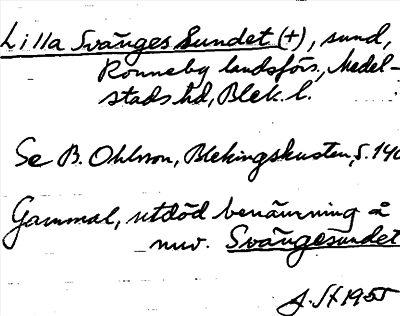 Lilla Svänges Sundet (+), sund,
Ronneby landsförs., Medel-
stads hd, Blek. l.
Se B. Ohlsson, Blekingskusten, s. 140
Gammal, utdöd benämning å
nuv. Svängesundet
1955